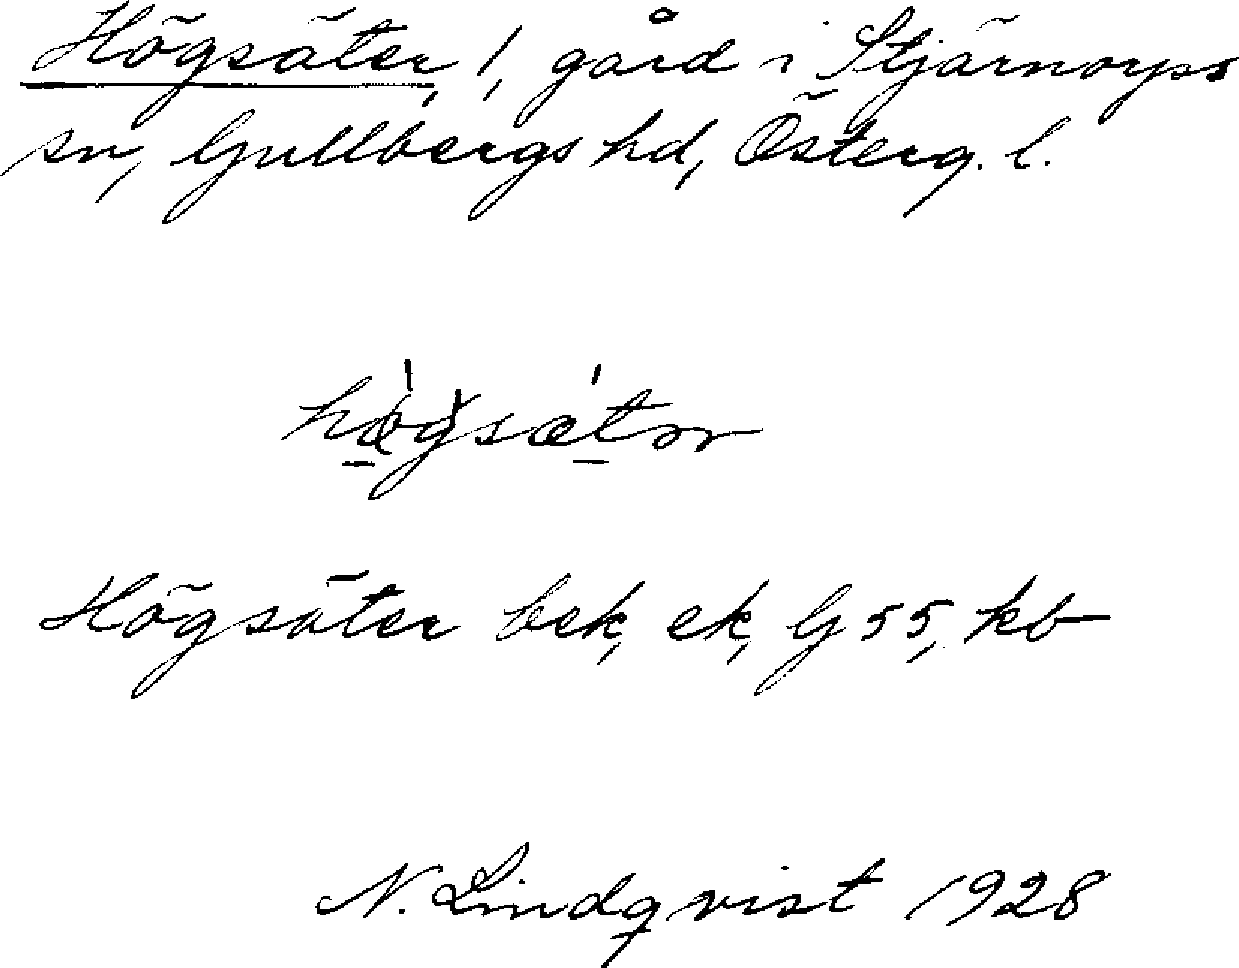 Högsäter, 1, gård i Stjärnorps
sn, Gullbergs hd, Österg. l.
Högsäter bek, ek, G 55, kb
N. Lindqvist 1928